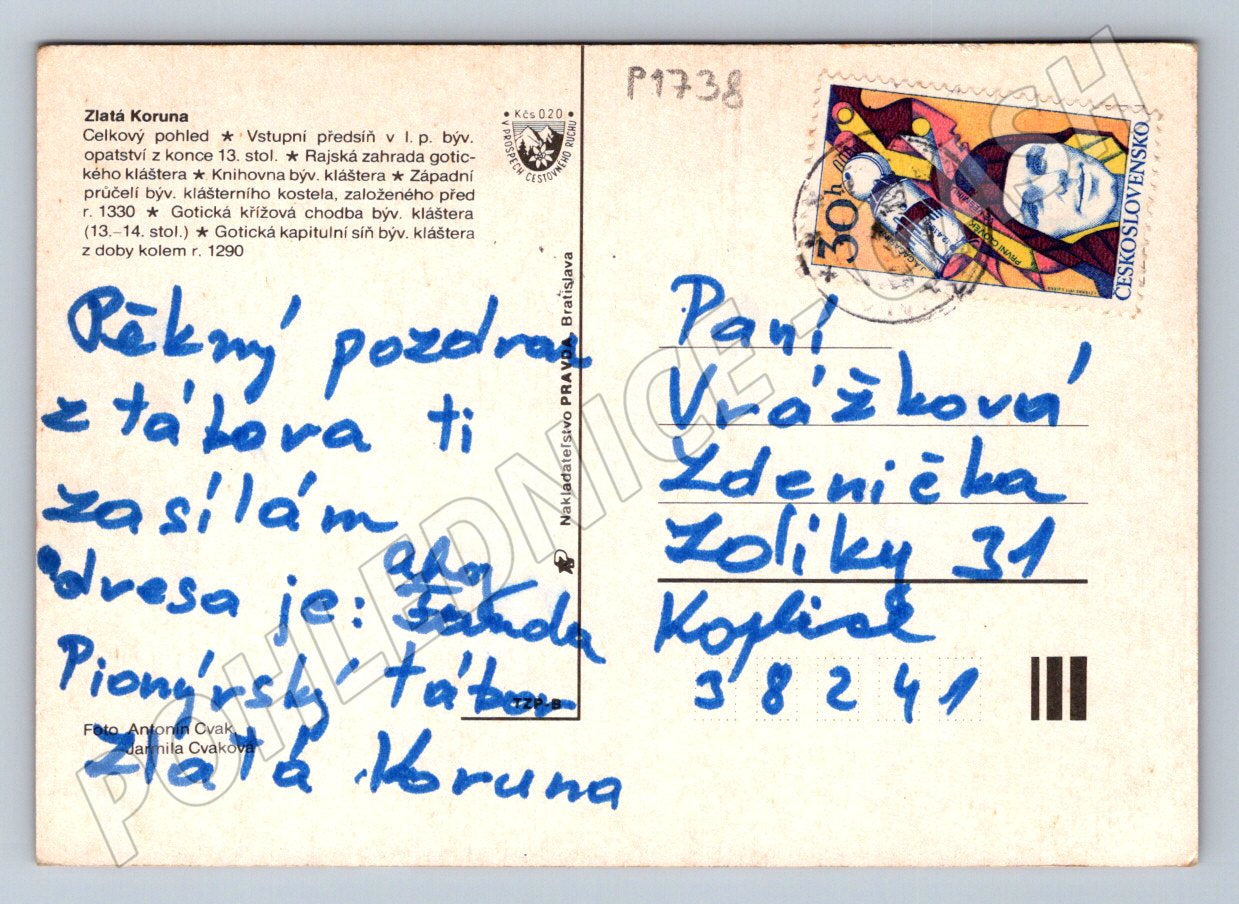 P1738
Zlatá Koruna
Celkový pohled ★ Vstupní předsíň v I. p. býv.
opatství z konce 13. stol. ★ Rajská zahrada gotic-
kého kláštera ★ Knihovna býv. kláštera ★ Západní
průčelí býv. klášterního kostela, založeného před
r. 1330 ★ Gotická křížová chodba býv. kláštera
(13.–14. stol.) ★ Gotická kapitulní síň býv. kláštera
z doby kolem r. 1290
Kčs 0.20
V PROSPĚCH CESTOVNÉHO RUCHU
30h
ČESKOSLOVENSKO
Pěkný pozdrav
z tábora ti
zasílám
adresa je:
Pionýrský tábor
Zlatá Koruna
Nakladateľstvo PRAVDA Bratislava
TZP-B
Foto Antonín Cvak,
Jarmila Cvaková
Paní
Vrážková
Zdenička
Zoliky 31
Kaplice
38241
POHLEDNICE - CASH